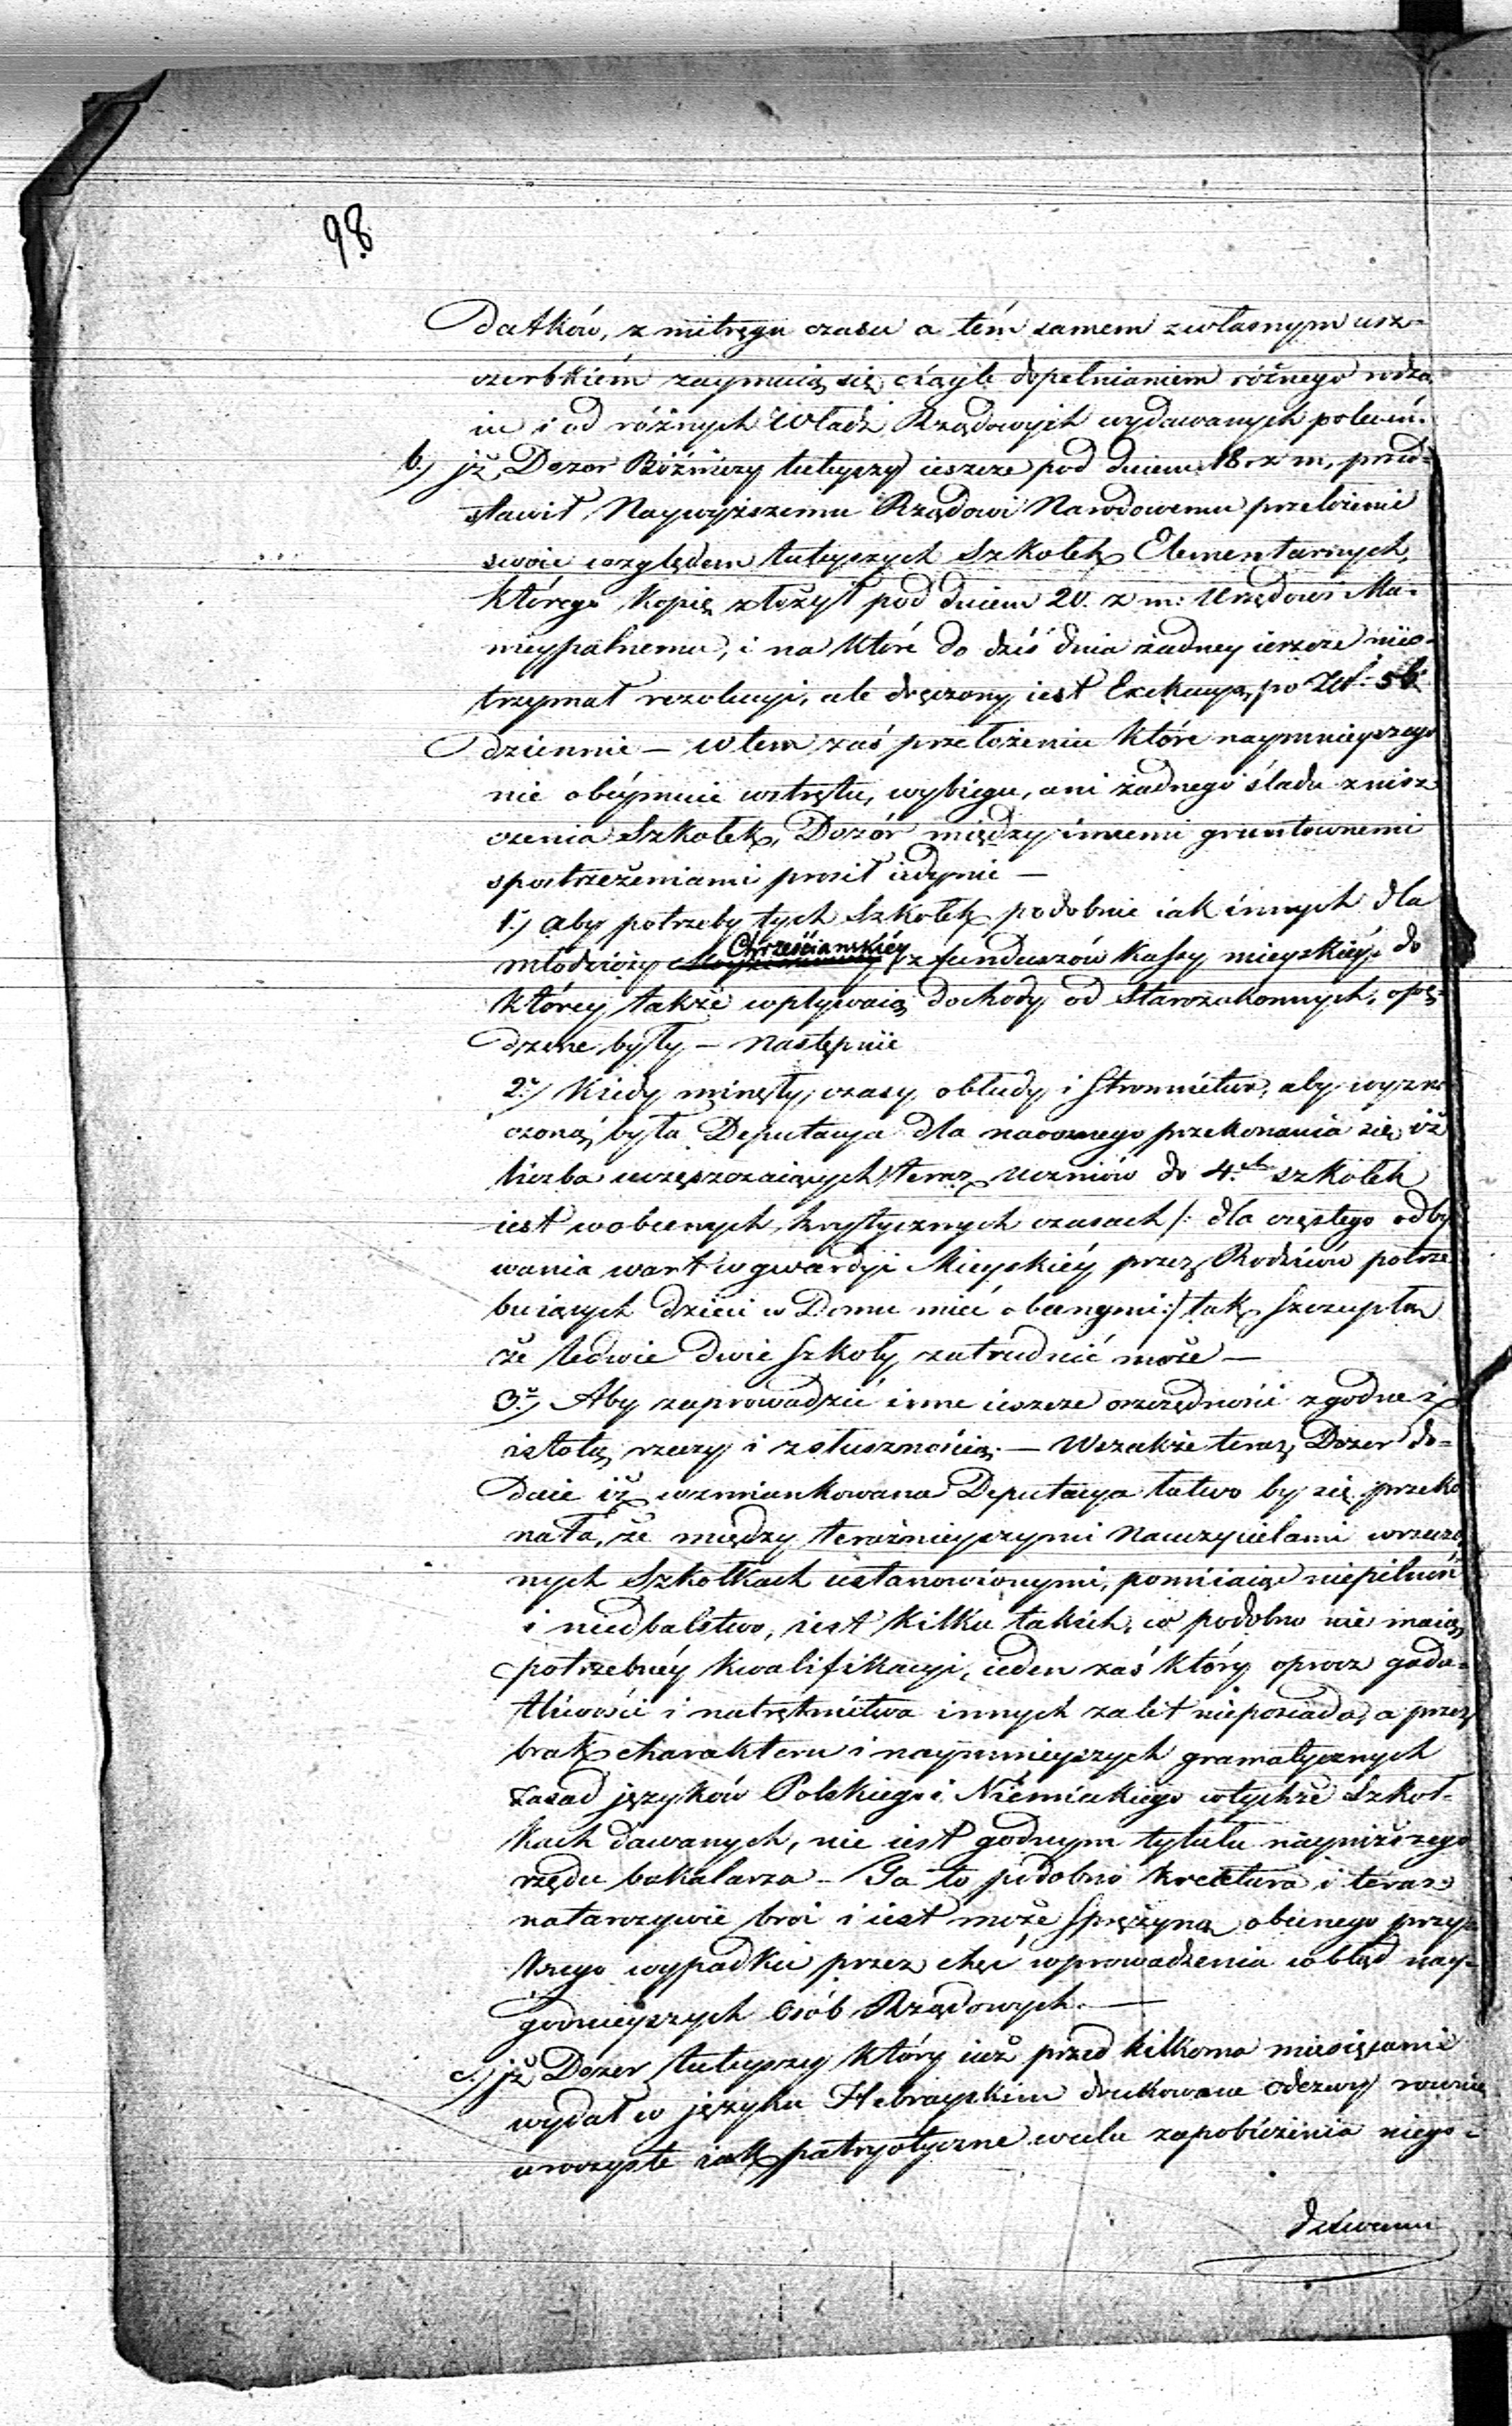 98
datków, z mitręgu czasu a tém samem z własnym usz=
czerbkiém zaymuią się ciągle dopełnianiem różnego rodza
iu i od różnych Władz Rządowych wydawanych poleceń.
b.) jż Dozor Bóźniczy tuteyszy ieszcze pod dniem 18. z m. przed=
stawił Naywyższemu Rządowi Narodowemu przełożenie
swoie względem tuteyszych Szkołek Elementarnych,
którego Kopię złożył pod dniem 20. z m: Urzędowi Mu=
nicypalnemu, i na które do dziś dnia żadney ieszcze nieo=
trzymał rezolucyi, ale dręczony iest Exekucyą po Zł.
dziennie — w tem zaś przełożeniu które naymnieyszego
nie obéymuie wstrętu, wybiegu, ani żadnego śladu znisz
czenia Szkołek, Dozór między innemi gruntownemi
spostrzeżeniami prosił iedynie —
1.) aby potrzeby tych Szkołek podobnie iak innych dla
młodzieży Chrześciańskiéy z funduszów Kassy mieyskiéy do
którey także wpływaią dochody od Starozakonnych, opę=
dzane były — następnie
2.) Kiedy minęły czasy obłudy i stronnictwa, aby wyzna
czoną była Deputacya dla naocznego przekonania się, iż
liczba uczęszczaiących teraz uczniów do 4.ch szkołek
iest w obecnych krytycznych czasach /: dla częstego odby
wania wart w gwardyi Mieyskiéy przez Rodziców potrze
buiących dzieci w Domu mieć obecnymi :/ tak szczupłą
że ledwie dwie szkoły zatrudnić może —
3.) Aby zaprowadzić inne ieszcze oszczędności zgodne z
istotą rzeczy i z słusznością. — Wszakże teraz Dozor do=
daie iż wzmiankowana Deputacya łatwo by się przeko
nała, że między teraźnieyszymi Nauczycielami w rzeczo
nych Szkołkach ustanowionymi, pomiiaiąc niepilność
i niedbalstwo, iest kilku takich, co podobno nie maią
potrzebnéy kwalifikacyi, ieden zaś który oprocz gada=
tliwości i natrętnictwa innych zalet nieposiada, a przez
brak charakteru i naymnieyszych gramatycznych
zasad języków Polskiego i Niémieckiego w tychże Szkoł=
kach dawanych, nie iest godnym tytułu nayniższego
rzędu bakalarza — Ta to podobno kreatura i teraz
natarczywie broi i iest może sprężyną obecnego przy
krego wypadku przez chęć wprowadzenia w błąd nay=
godnieyszych Osób Rządowych. —
c.) jż Dozor tuteyszy który iuż przed kilkoma miesiącami
wydał w języku Hebrayskim drukowane odezwy rownie
uroczyste iak patryotyczne w celu zapobieżenia niego=